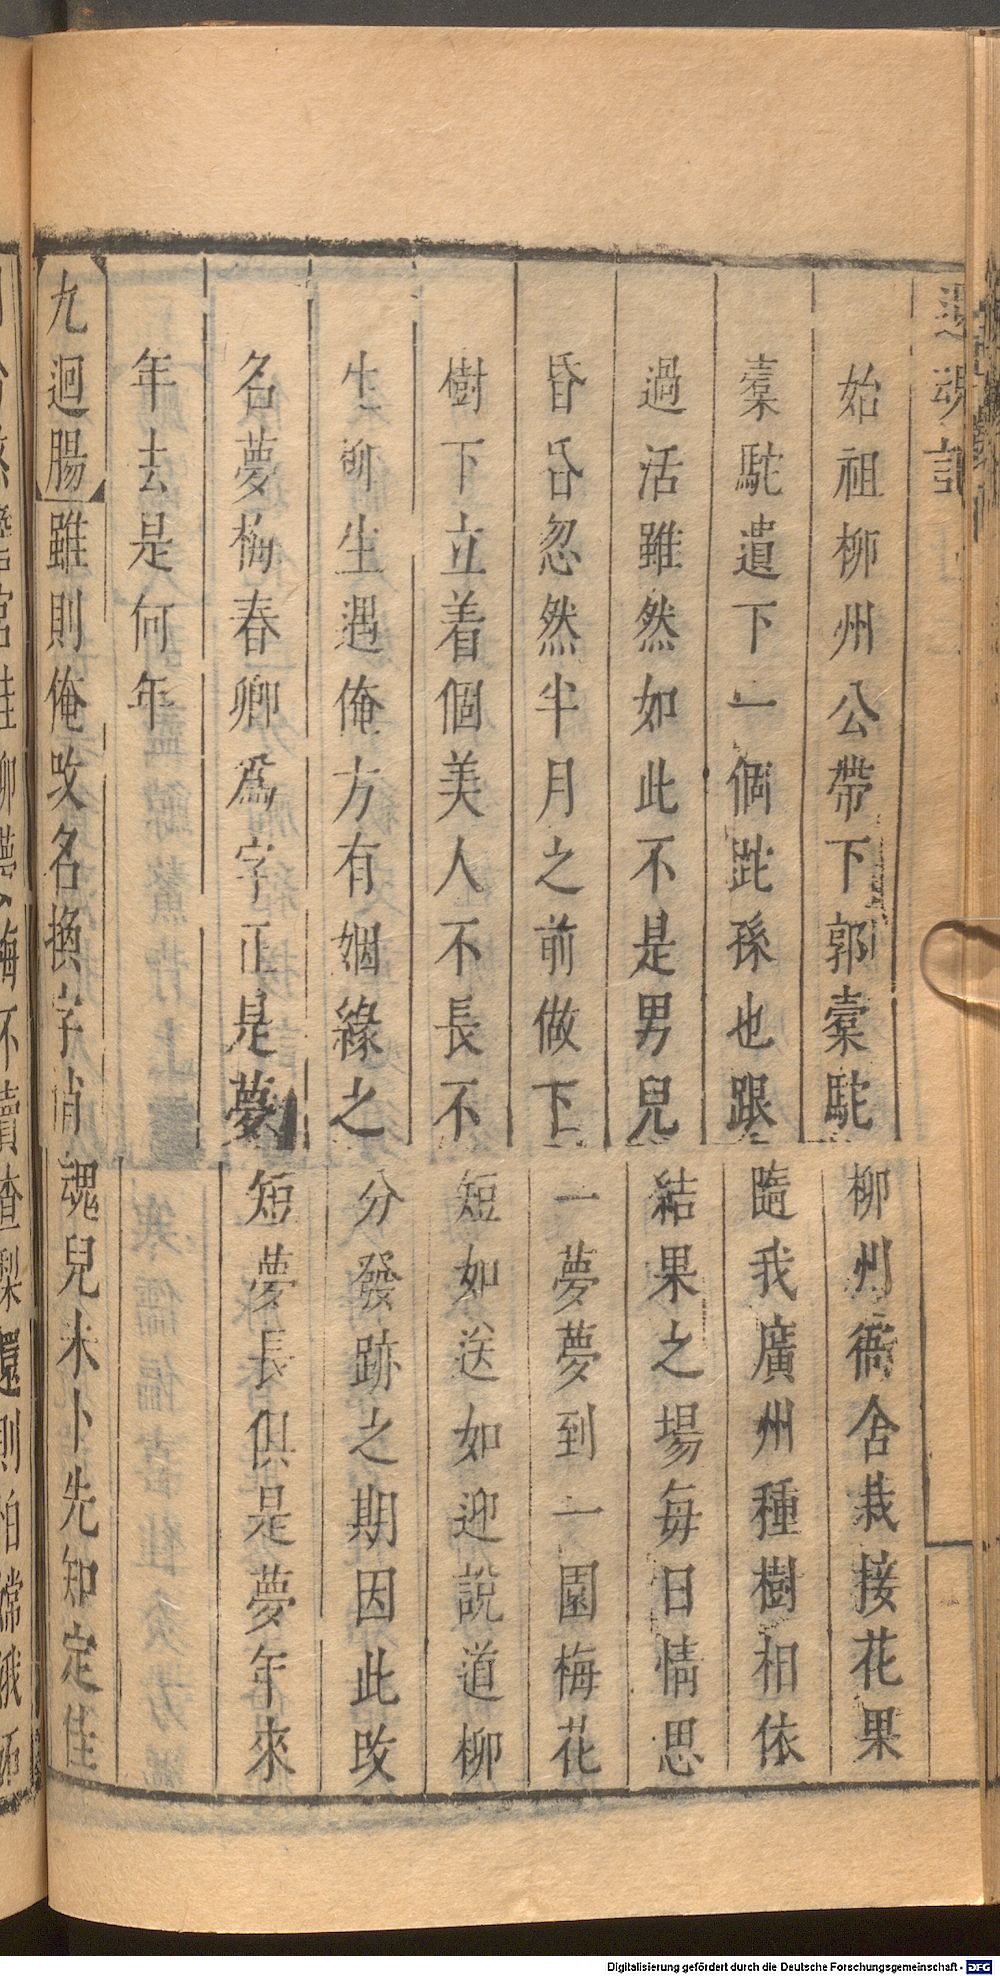 還魂記
始祖柳州公帶下郭橐駝柳州衙舍栽接花果
橐駝遺下一個跎孫也跟隨我廣州種樹相依
過活雖然如此不是男兒結果之場每日情思
昏昏忽然半月之前做下一夢夢到一園梅花
樹下立着個美人不長不短如送如迎說道柳
生柳生遇俺方有姻緣之分發跡之期因此攺
名夢梅春卿爲字正是夢短夢長俱是夢年來
年去是何年
九迴腸雖則俺攺名換字俏魂兒未卜先知定佳
Digitalisierung gefördert durch die Deutsche Forschungsgemeinschaft - DFG